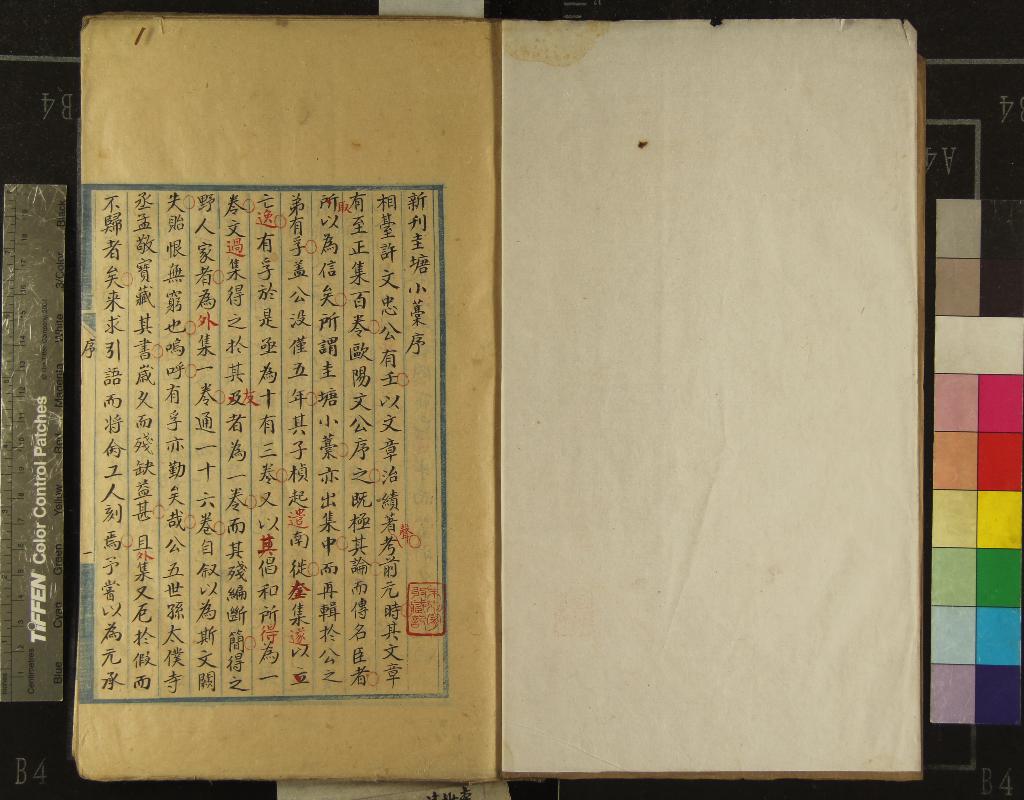 新刊圭塘小藁序
相臺許文忠公有壬以文章治績著聲考前元時其文章
有至正集百卷歐陽文公序之既極其論而傳名臣者
所取以為信矣所謂圭塘小藁亦出集中而再輯於公之
弟有孚蓋公沒僅五年其子楨起遣南徙奎集遂以立
亡逸有孚於是亟為十有三卷又以其倡和所得為一
卷文過集得之於其友者為一卷而其殘編斷簡得之
野人家者為外集一卷通一十六卷自叙以為斯文闕
失貽恨無窮也嗚呼有孚亦勤矣哉公五世孫太僕寺
丞孟敬寶藏其書歲久而殘缺益甚且外集又厄於假而
不歸者矣來求引語而將俞工人刻焉予嘗以為元承
序
一
TIFFEN Color Control Patches
Centimetres
Inches
Blue
Cyan
Green
Yellow
Red
Magenta
White
3/Color
Black
B4
B4
B4
B4
A4